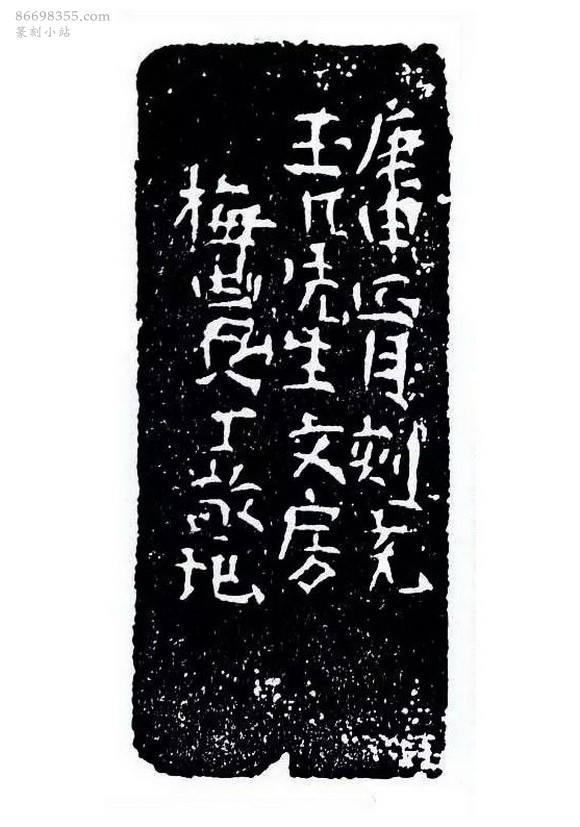 86698355.com
篆刻小站
庚申四月刻充
玉几先生文房
梅農丁敬記